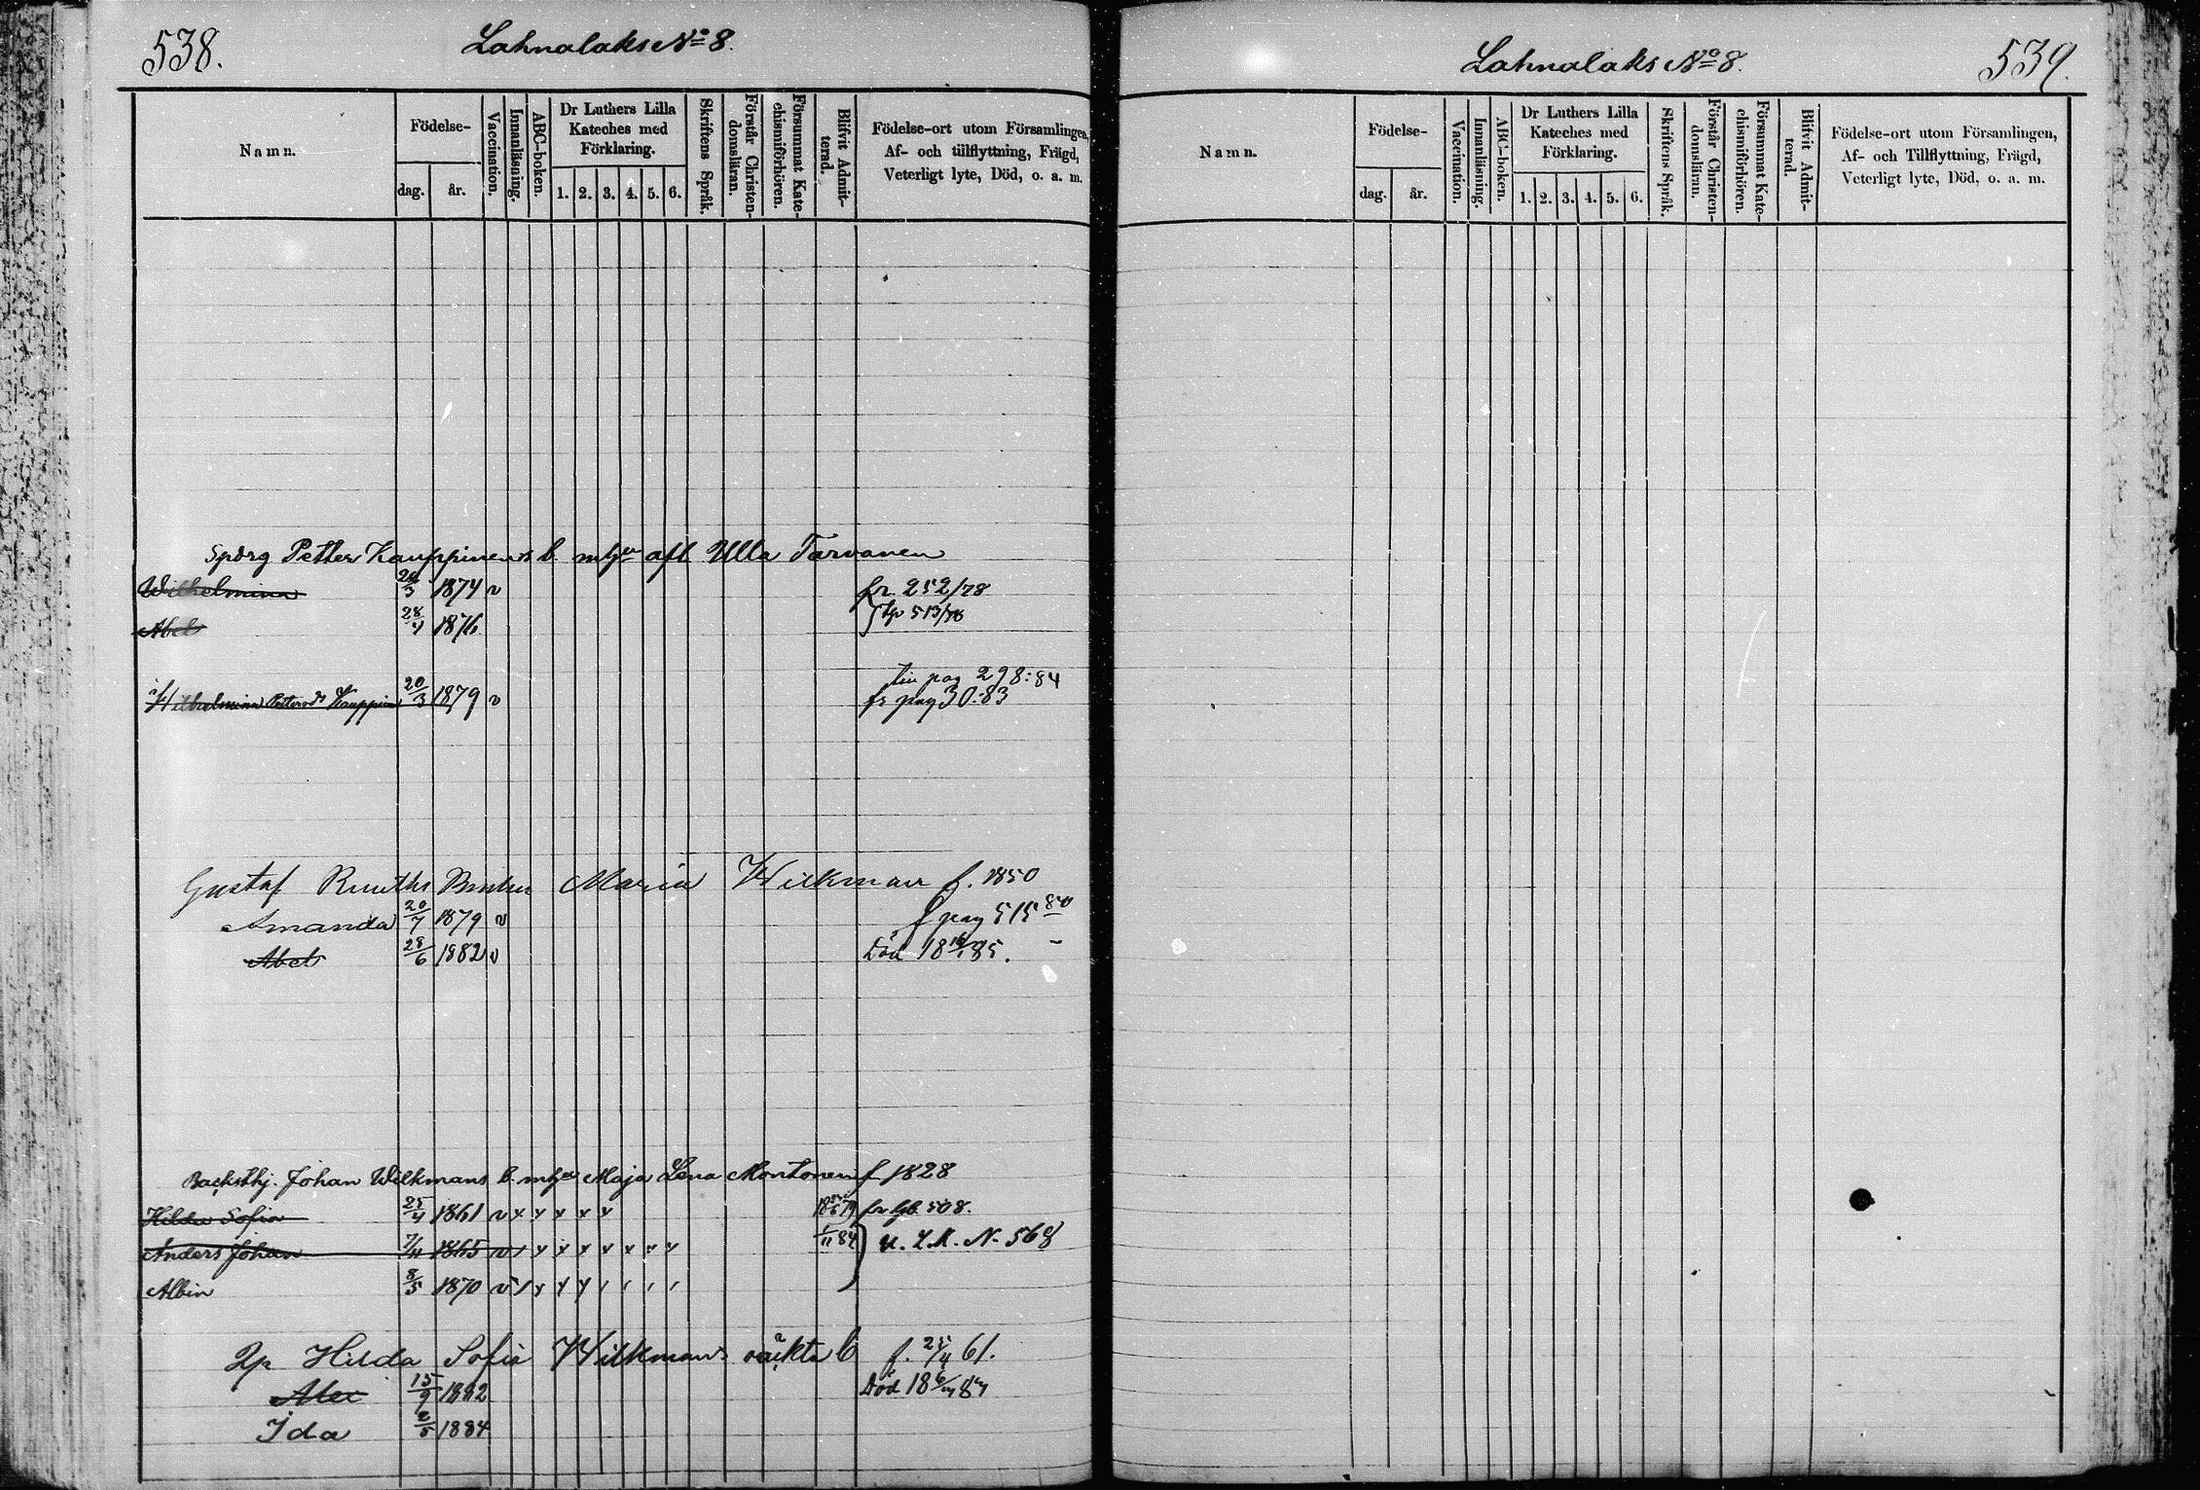 538.
Lahnalaks No 8.
Namn.
Födelse-
dag.
år.
Vaccination.
Innanläsning.
ABC-boken.
Dr Luthers Lilla
Kateches med
Förklaring.
1. 2. 3. 4. 5. 6.
Skriftens Språk.
Förstår Christen-
domsläran.
Försummat Kate-
chismiförhören.
Blifvit Admit-
terad.
Födelse-ort utom Församlingen,
Af- och tillflyttning, Frägd,
Veterligt lyte, Död, o. a. m.
Petter Kauppinens b. afl Ulla Tarvanen
Wilhelmina 3 1874 v fr. 252/78
Abel 28/4 1876 513/78
pag 298:84
Wilhelmina 20/3 1879 v fr pag 30:83
Gustaf Maria Wilkman f. 1850
Amanda 20/7 1879 v f pag 515 80
Abel 28/6 1882 v Död 18 85. -
Johan Wilkmans b. Maja Lena Montonen f 1828
Hilda Sofia 25/4 1861 v 508.
Anders Johan 7/11 1865 84 N. 568
Albin 8/5 1870
Hilda Sofia Wilkmans oäkta b f. 25/4 61.
Alex 15/9 1882 Död 18
Ida 2/5 1884
Lahnalaks No 8.
539.
Namn.
Födelse-
dag.
år.
Vaccination.
Innanläsning.
ABC-boken.
Dr Luthers Lilla
Kateches med
Förklaring.
1. 2. 3. 4. 5. 6.
Skriftens Språk.
Förstår Christen-
domsläran.
Försummat Kate-
chismiförhören.
Blifvit Admit-
terad.
Födelse-ort utom Församlingen,
Af- och Tillflyttning, Frägd,
Veterligt lyte, Död, o. a. m.